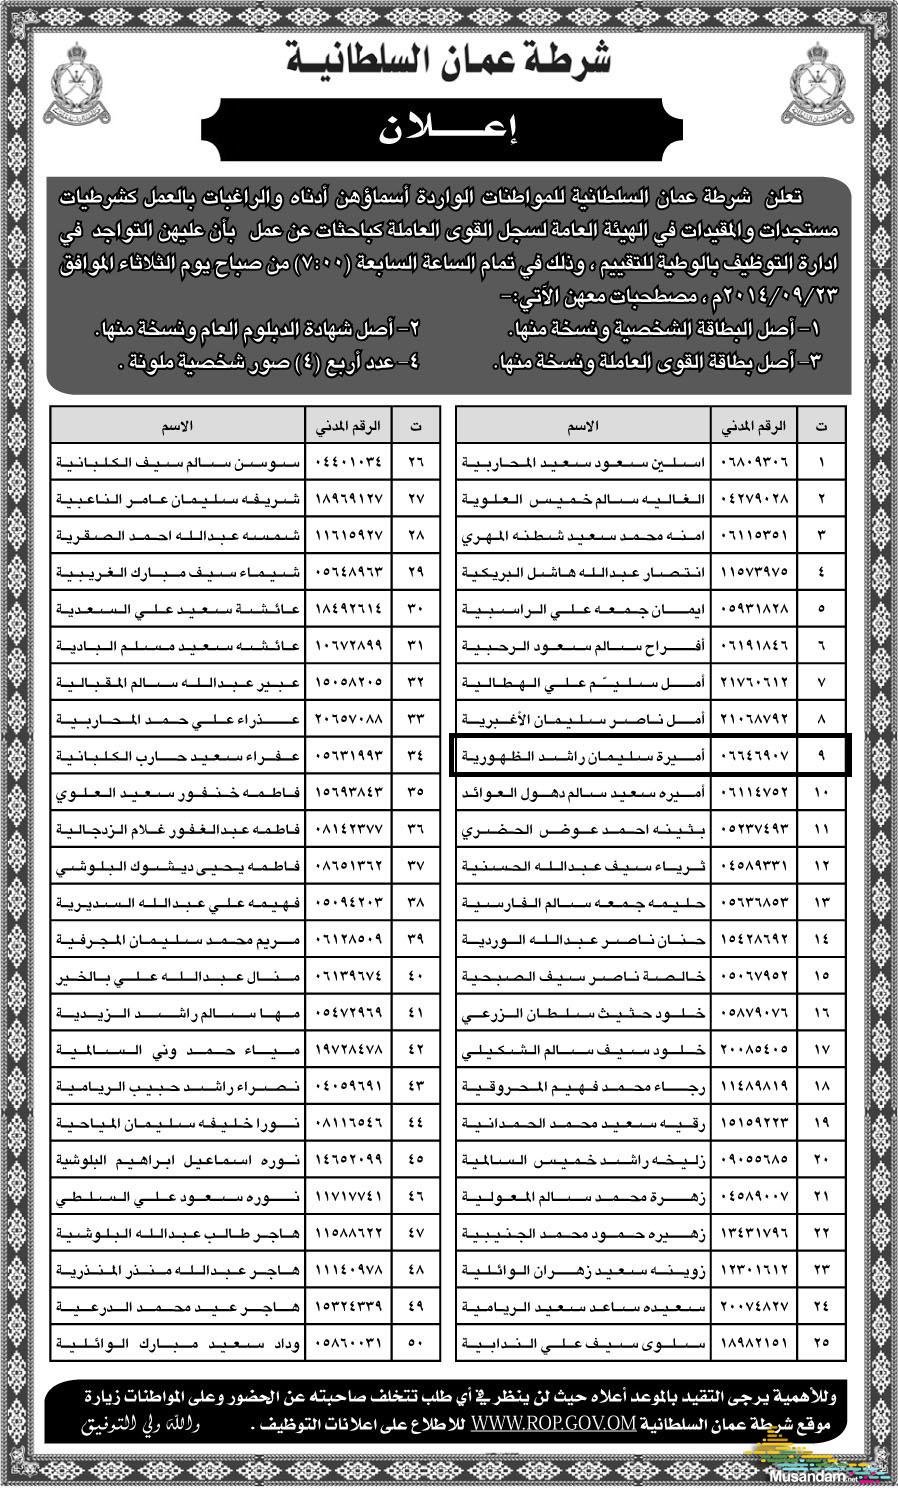 شرطة عمان السلطانية
إعـــلان
تعلن شرطة عمان السلطانية للمواطنات الواردة أسماؤهن أدناه والراغبات بالعمل كشرطيات
مستجدات والمقيدات في الهيئة العامة لسجل القوى العاملة كباحثات عن عمل بأن عليهن التواجد في
ادارة التوظيف بالوطية للتقييم ، وذلك في تمام الساعة السابعة (٧:٠٠) من صباح يوم الثلاثاء الموافق
٢٠١٤/٠٩/٢٣م ، مصطحبات معهن الآتي:-
١- أصل البطاقة الشخصية ونسخة منها. ٢- أصل شهادة الدبلوم العام ونسخة منها.
٣- أصل بطاقة القوى العاملة ونسخة منها. ٤- عدد أربع (٤) صور شخصية ملونة .
ت الرقم المدني الاسم
١ ٠٦٨٠٩٣٠٦ اسلين سعود سعيد المحاربية
٢ ٠٤٢٧٩٠٢٨ الغاليه سالم خميس العلوية
٣ ٠٦١١٥٣٥١ امنه محمد سعيد شطنه المهري
٤ ١١٥٧٣٩٧٥ انتصار عبدالله هاشل البريكية
٥ ٠٥٩٣١٨٢٨ ايمان جمعه علي الراسبية
٦ ٠٦١٩١٨٤٦ أفراح سالم سعود الرحبية
٧ ٢١٧٦٠٦١٢ أمل سليم علي الهطالية
٨ ٢١٠٦٨٧٩٢ أمل ناصر سليمان الأغبرية
٩ ٠٦٦٤٦٩٠٧ أميرة سليمان راشد الظهورية
١٠ ٠٦١١٤٧٥٢ أميره سعيد سالم دهول العوائد
١١ ٠٥٢٣٧٤٩٣ بثينه احمد عوض الحضري
١٢ ٠٤٥٨٩٣٣١ ثرياء سيف عبدالله الحسنية
١٣ ٠٥٦٣٦٨٥٣ حليمه جمعه سالم الفارسية
١٤ ١٥٤٢٨٦٩٢ حنان ناصر عبدالله الوردية
١٥ ٠٥٠٦٧٩٥٢ خالصة ناصر سيف الصبحية
١٦ ٠٥٨٧٩٠٧٦ خلود حثيث سلطان الزرعي
١٧ ٢٠٠٨٥٤٠٥ خلود سيف سالم الشكيلي
١٨ ١١٤٨٩٨١٩ رجاء محمد فهيم المحروقية
١٩ ١٥١٥٩٢٢٣ رقيه سعيد محمد الحمدانية
٢٠ ٠٩٠٥٥٦٨٥ زليخه راشد خميس السالمية
٢١ ٠٤٥٨٩٠٠٧ زهرة محمد سالم المعولية
٢٢ ١٣٤٣١٧٩٦ زهيره حمود محمد الجنيبية
٢٣ ١٢٣٠١٦١٢ زوينه سعيد زهران الوائلية
٢٤ ٢٠٠٧٤٨٢٧ سعيده ساعد سعيد الريامية
٢٥ ١٨٩٨٢١٥١ سلوى سيف علي الندابية
ت الرقم المدني الاسم
٢٦ ٠٤٤٠١٠٣٤ سوسن سالم سيف الكلبانية
٢٧ ١٨٩٦٩١٢٧ شريفه سليمان عامر الناعبية
٢٨ ١١٦١٥٩٢٧ شمسه عبدالله احمد الصقرية
٢٩ ٠٥٦٤٨٩٦٣ شيماء سيف مبارك الغريبية
٣٠ ١٨٤٩٢٦١٤ عائشة سعيد علي السعدية
٣١ ١٠٦٧٢٨٩٩ عائشه سعيد مسلم البادية
٣٢ ١٥٠٥٨٢٠٥ عبير عبدالله سالم المقبالية
٣٣ ٢٠٦٥٧٠٨٨ عذراء علي حمد المحاربية
٣٤ ٠٥٦٣١٩٩٣ عفراء سعيد حارب الكلبانية
٣٥ ١٥٦٩٣٨٤٣ فاطمه خنفور سعيد العلوي
٣٦ ٠٨١٤٢٣٧٧ فاطمه عبدالغفور غلام الزدجالية
٣٧ ٠٨٦٥١٣٦٢ فاطمه يحيى ديشوك البلوشي
٣٨ ٠٥٠٩٤٢٠٣ فهيمه علي عبدالله السديرية
٣٩ ٠٦١٢٨٥٠٩ مريم محمد سليمان المجرفية
٤٠ ٠٦١٣٩٦٧٤ منال عبدالله علي بالخير
٤١ ٠٥٤٧٢٩٦٩ مها سالم راشد الزيدية
٤٢ ١٩٧٢٨٤٧٨ مياء حمد وني السالمية
٤٣ ٠٤٠٥٩٦٩١ نصراء راشد حبيب الريامية
٤٤ ٠٨١١٦٥٤٦ نورا خليفه سليمان المياحية
٤٥ ١٤٦٥٢٠٩٩ نوره اسماعيل ابراهيم البلوشية
٤٦ ١١٧١٧٧٤١ نوره سعود علي السلطي
٤٧ ١١٥٨٨٦٢٢ هاجر طالب عبدالله البلوشية
٤٨ ١١١٤٠٩٧٨ هاجر عبدالله منذر المنذرية
٤٩ ١٥٣٢٤٣٣٩ هاجر عيد محمد الدرعية
٥٠ ٠٥٨٦٠٠٣١ وداد سعيد مبارك الوائلية
وللأهمية يرجى التقيد بالموعد أعلاه حيث لن ينظر في أي طلب تتخلف صاحبته عن الحضور وعلى المواطنات زيارة
موقع شرطة عمان السلطانية WWW.ROP.GOV.OM للاطلاع على اعلانات التوظيف . والله ولي التوفيق
Musandam.net